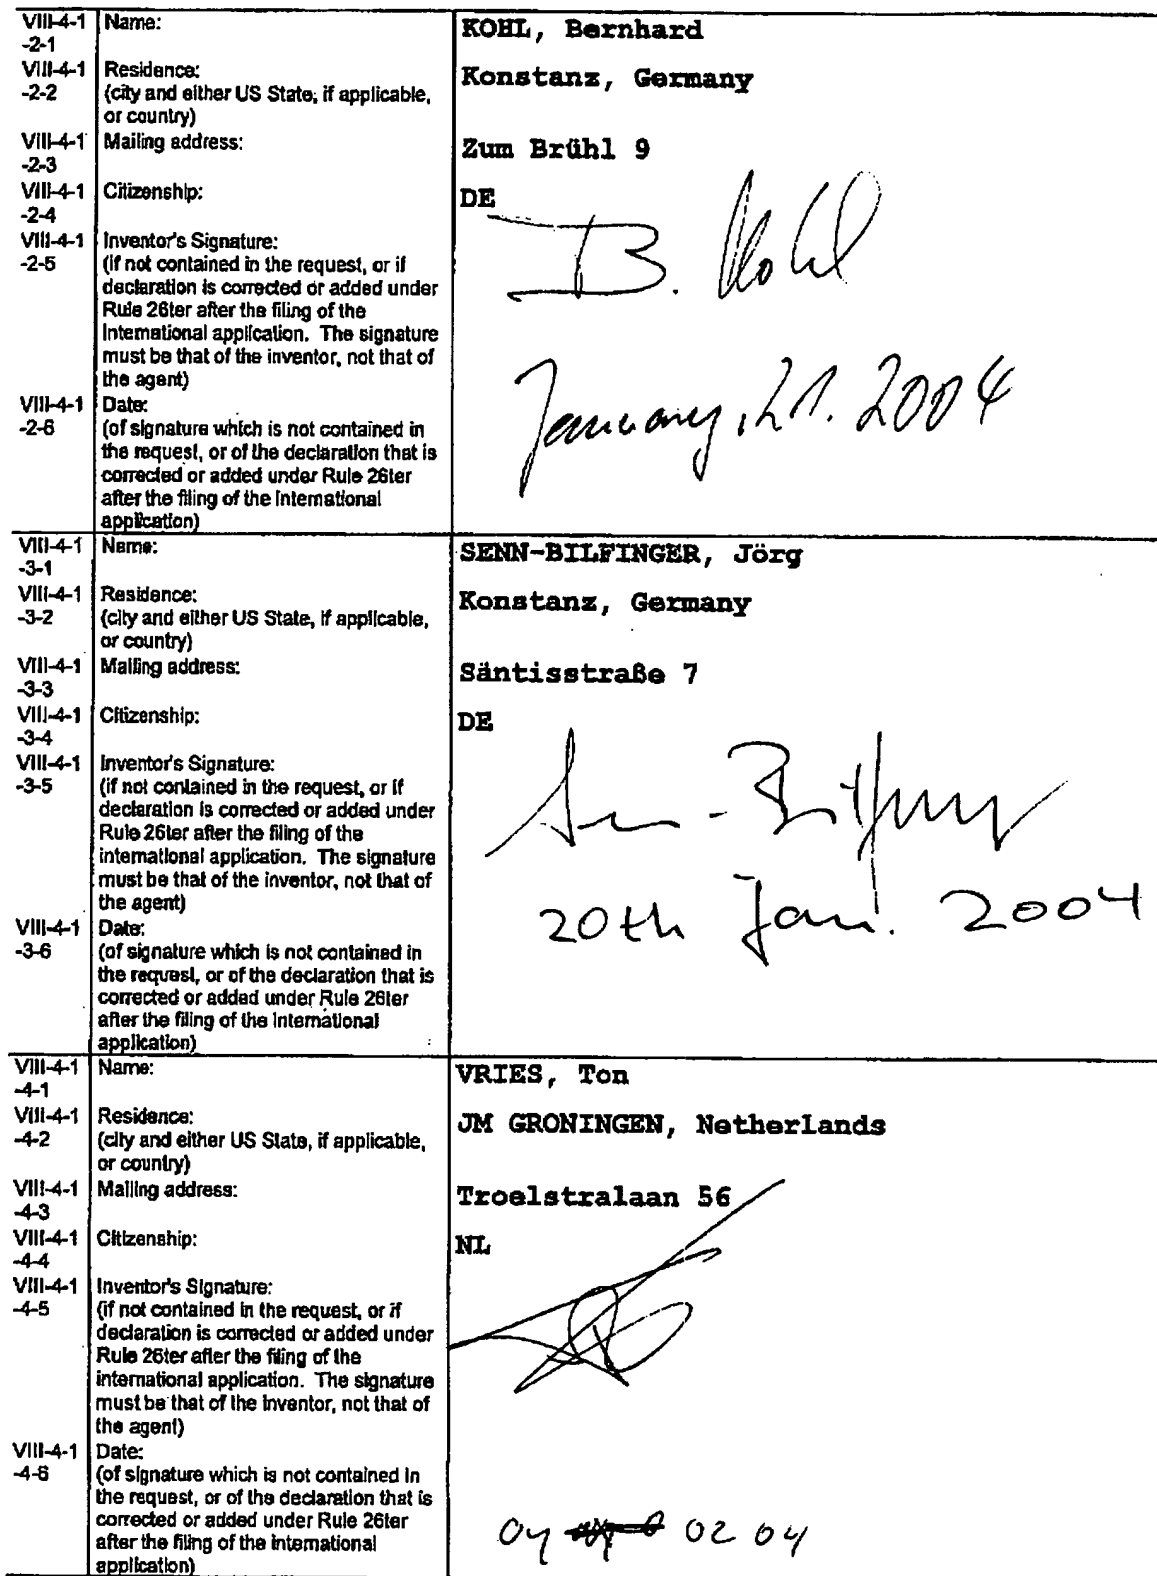 VIII-4-1 Name: KOHL, Bernhard
-2-1
VIII-4-1 Residence: Konstanz, Germany
-2-2 (city and either US State, if applicable,
or country)
VIII-4-1 Mailing address: Zum Brühl 9
-2-3
VIII-4-1 Citizenship: DE
-2-4
VIII-4-1 Inventor's Signature: B. Kohl
-2-5 (if not contained in the request, or if
declaration is corrected or added under
Rule 26ter after the filing of the
international application. The signature
must be that of the inventor, not that of
the agent)
VIII-4-1 Date: January, 21. 2004
-2-6 (of signature which is not contained in
the request, or of the declaration that is
corrected or added under Rule 26ter
after the filing of the international
application)
VIII-4-1 Name: SENN-BILFINGER, Jörg
-3-1
VIII-4-1 Residence: Konstanz, Germany
-3-2 (city and either US State, if applicable,
or country)
VIII-4-1 Mailing address: Säntisstraße 7
-3-3
VIII-4-1 Citizenship: DE
-3-4
VIII-4-1 Inventor's Signature:
-3-5 (if not contained in the request, or if
declaration is corrected or added under
Rule 26ter after the filing of the
international application. The signature
must be that of the inventor, not that of
the agent)
20th Jan. 2004
VIII-4-1 Date:
-3-6 (of signature which is not contained in
the request, or of the declaration that is
corrected or added under Rule 26ter
after the filing of the international
application)
VIII-4-1 Name: VRIES, Ton
-4-1
VIII-4-1 Residence: JM GRONINGEN, Netherlands
-4-2 (city and either US State, if applicable,
or country)
VIII-4-1 Mailing address: Troelstralaan 56
-4-3
VIII-4-1 Citizenship: NL
-4-4
VIII-4-1 Inventor's Signature:
-4-5 (if not contained in the request, or if
declaration is corrected or added under
Rule 26ter after the filing of the
international application. The signature
must be that of the inventor, not that of
the agent)
VIII-4-1 Date:
-4-6 (of signature which is not contained in
the request, or of the declaration that is
corrected or added under Rule 26ter
after the filing of the international
application)
04 02 04